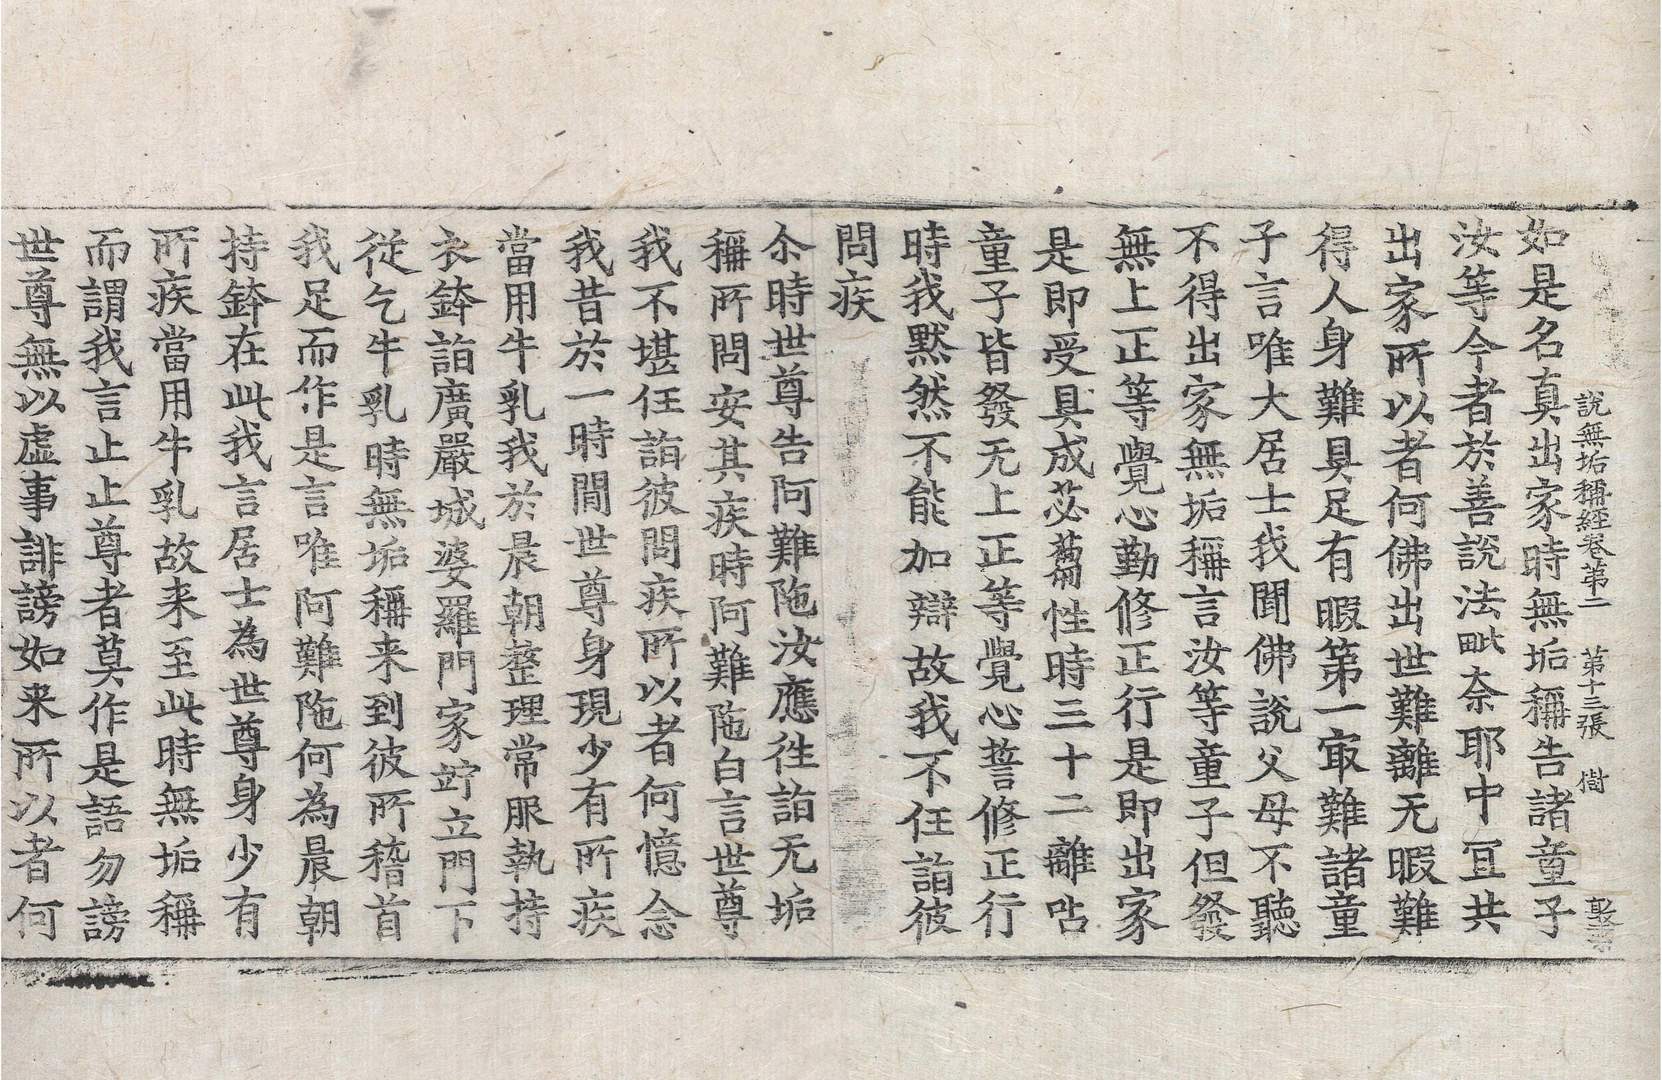 說無垢稱經卷第二　第十三張　
如是名真出家時無垢稱告諸童子
汝等今者於善說法毗奈耶中冝共
出家所以者何佛出世難離无暇難
得人身難具足有暇第一㝡難諸童
子言唯大居士我聞佛說父母不聽
不得出家無垢稱言汝等童子但發
無上正等覺心勤修正行是即出家
是即受具成苾蒭性時三十二離呫
童子皆發无上正等覺心誓修正行
時我默然不能加辯故我不任詣彼
問疾
尒時世尊告阿難陁汝應往詣无垢
稱所問安其疾時阿難陁白言世尊
我不堪任詣彼問疾所以者何憶念
我昔於一時間世尊身現少有所疾
當用牛乳我於晨朝整理常服執持
衣鉢詣廣嚴城婆羅門家竚立門下
從乞牛乳時無垢稱来到彼所稽首
我足而作是言唯阿難陁何為晨朝
持鉢在此我言居士為世尊身少有
所疾當用牛乳故来至此時無垢稱
而謂我言止止尊者莫作是語勿謗
世尊無以虛事誹謗如来所以者何